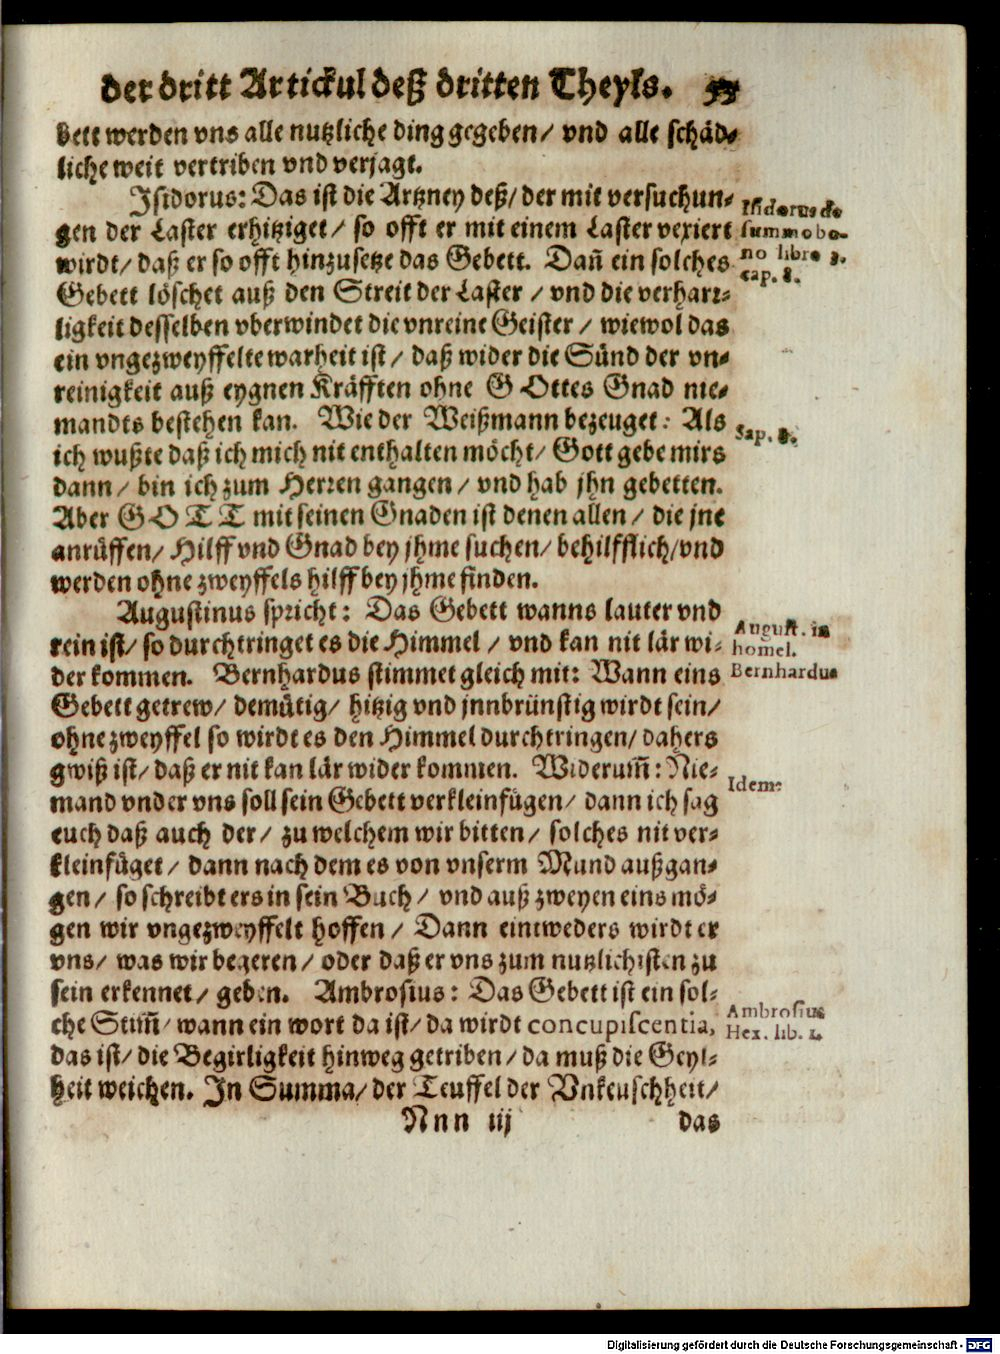 der dritt Artickul deß dritten Theyls. 55
bett werden vns alle nutzliche ding gegeben/ vnd alle schäd⸗
liche weit vertriben vnd verjagt.
Jsidorus: Das ist die Artzney deß/ der mit versuchun⸗
gen der Laster erhitziget/ so offt er mit einem Laster vexiert
wirdt/ daß er so offt hinzusetze das Gebett. Dañ ein solches
Gebett löschet auß den Streit der Laster / vnd die verharr⸗
ligkeit desselben vberwindet die vnreine Geister / wiewol das
ein vngezweyffelte warheit ist/ daß wider die Sünd der vn⸗
reinigkeit auß eygnen Kräfften ohne GOttes Gnad nie⸗
mandts bestehen kan. Wie der Weißmann bezeuget: Als
ich wußte daß ich mich nit enthalten möcht/ Gott gebe mirs
dann/ bin ich zum Herren gangen/ vnd hab jhn gebetten.
Aber GOTT mit seinen Gnaden ist denen allen/ die jne
anrüffen/ Hilff vnd Gnad bey jhme suchen/ behilfflich/ vnd
werden ohne zweyffels hilff bey jhme finden.
Augustinus spricht: Das Gebett wanns lauter vnd
rein ist/ so durchtringet es die Himmel / vnd kan nit lär wi⸗
der kommen. Bernhardus stimmet gleich mit: Wann eins
Gebett getrew/ demütig/ hitzig vnd jnnbrünstig wirdt sein/
ohne zweyffel so wirdt es den Himmel durchtringen/ dahers
gwiß ist/ daß er nit kan lär wider kommen. Widerum̃: Nie⸗
mand vnder vns soll sein Gebett verkleinfügen/ dann ich sag
euch daß auch der/ zu welchem wir bitten/ solches nit ver⸗
kleinfüget/ dann nach dem es von vnserm Mund außgan⸗
gen/ so schreibt ers in sein Buch/ vnd auß zweyen eins mö⸗
gen wir vngezweyffelt hoffen/ Dann eintweders wirdt er
vns/ was wir begeren/ oder daß er vns zum nutzlichisten zu
sein erkennet/ geben. Ambrosius: Das Gebett ist ein sol⸗
che Stim̃/ wann ein wort da ist/ da wirdt concupiscentia,
das ist/ die Begirligkeit hinweg getriben/ da muß die Geyl⸗
heit weichen. Jn Summa/ der Teuffel der Vnkeuschheit/
Nnn iij das
Isidorus de
summo bo-
no libro 3.
cap. 8.
Sap. 8.
August. in
homel.
Bernhardus
Idem:
Ambrosius
Hex. lib. 4.
Digitalisierung gefördert durch die Deutsche Forschungsgemeinschaft - DFG